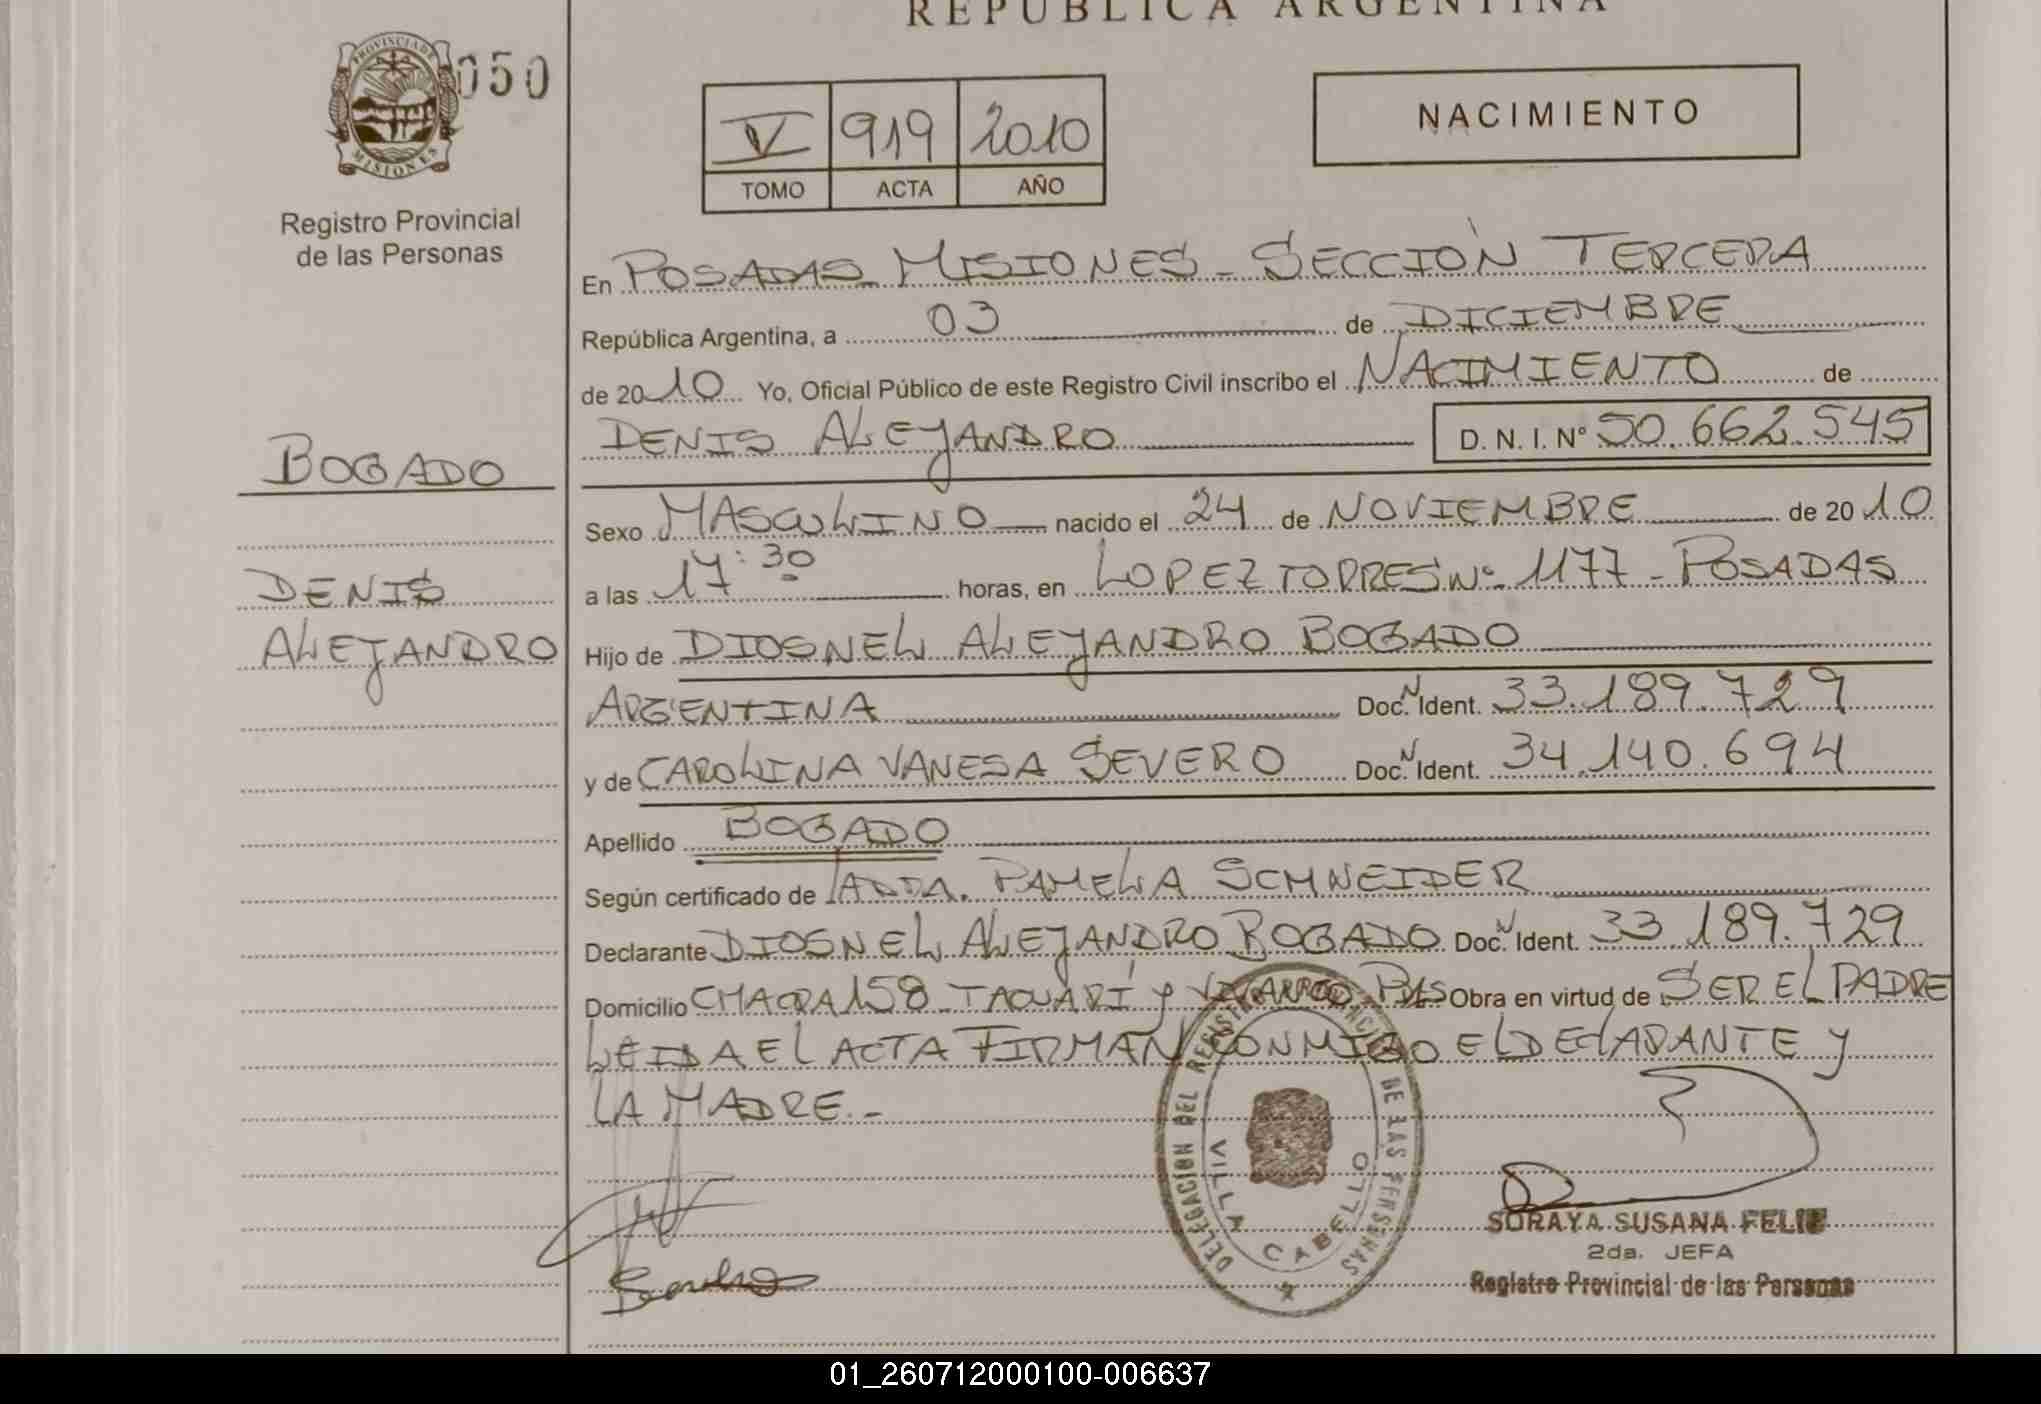 REPUBLICA ARGENTINA
PROVINCIA DE
MISIONES
050
Registro Provincial
de las Personas
V 919 2010
TOMO ACTA AÑO
NACIMIENTO
En POSADAS MISIONES - SECCIÓN TERCERA
República Argentina, a 03 de DICIEMBRE
de 2010 Yo, Oficial Público de este Registro Civil inscribo el NACIMIENTO de
DENIS ALEJANDRO D. N. I. Nº 50.662.545
BOGADO
Sexo MASCULINO nacido el 24 de NOVIEMBRE de 2010
DENIS
a las 17:30 horas, en LOPEZ TORRES Nº 1177 - POSADAS
ALEJANDRO
Hijo de DIOSNEL ALEJANDRO BOGADO
ARGENTINA Doc. N Ident. 33.189.729
y de CAROLINA VANESA SEVERO Doc. N Ident. 34.140.694
Apellido BOGADO
Según certificado de PAMELA SCHNEIDER
Declarante DIOSNEL ALEJANDRO BOGADO Doc. N Ident. 33.189.729
Domicilio CHACRA 158 - TACUARÍ y Obra en virtud de SER EL PADRE
LEIDA EL ACTA FIRMAN CONMIGO EL DECLARANTE Y
LA MADRE.-
DELEGACION DEL REGISTRO PROVINCIAL DE LAS PERSONAS
VILLA CABELLO
SORAYA SUSANA FELIZ
2da. JEFA
Registro Provincial de las Personas
01_260712000100-006637